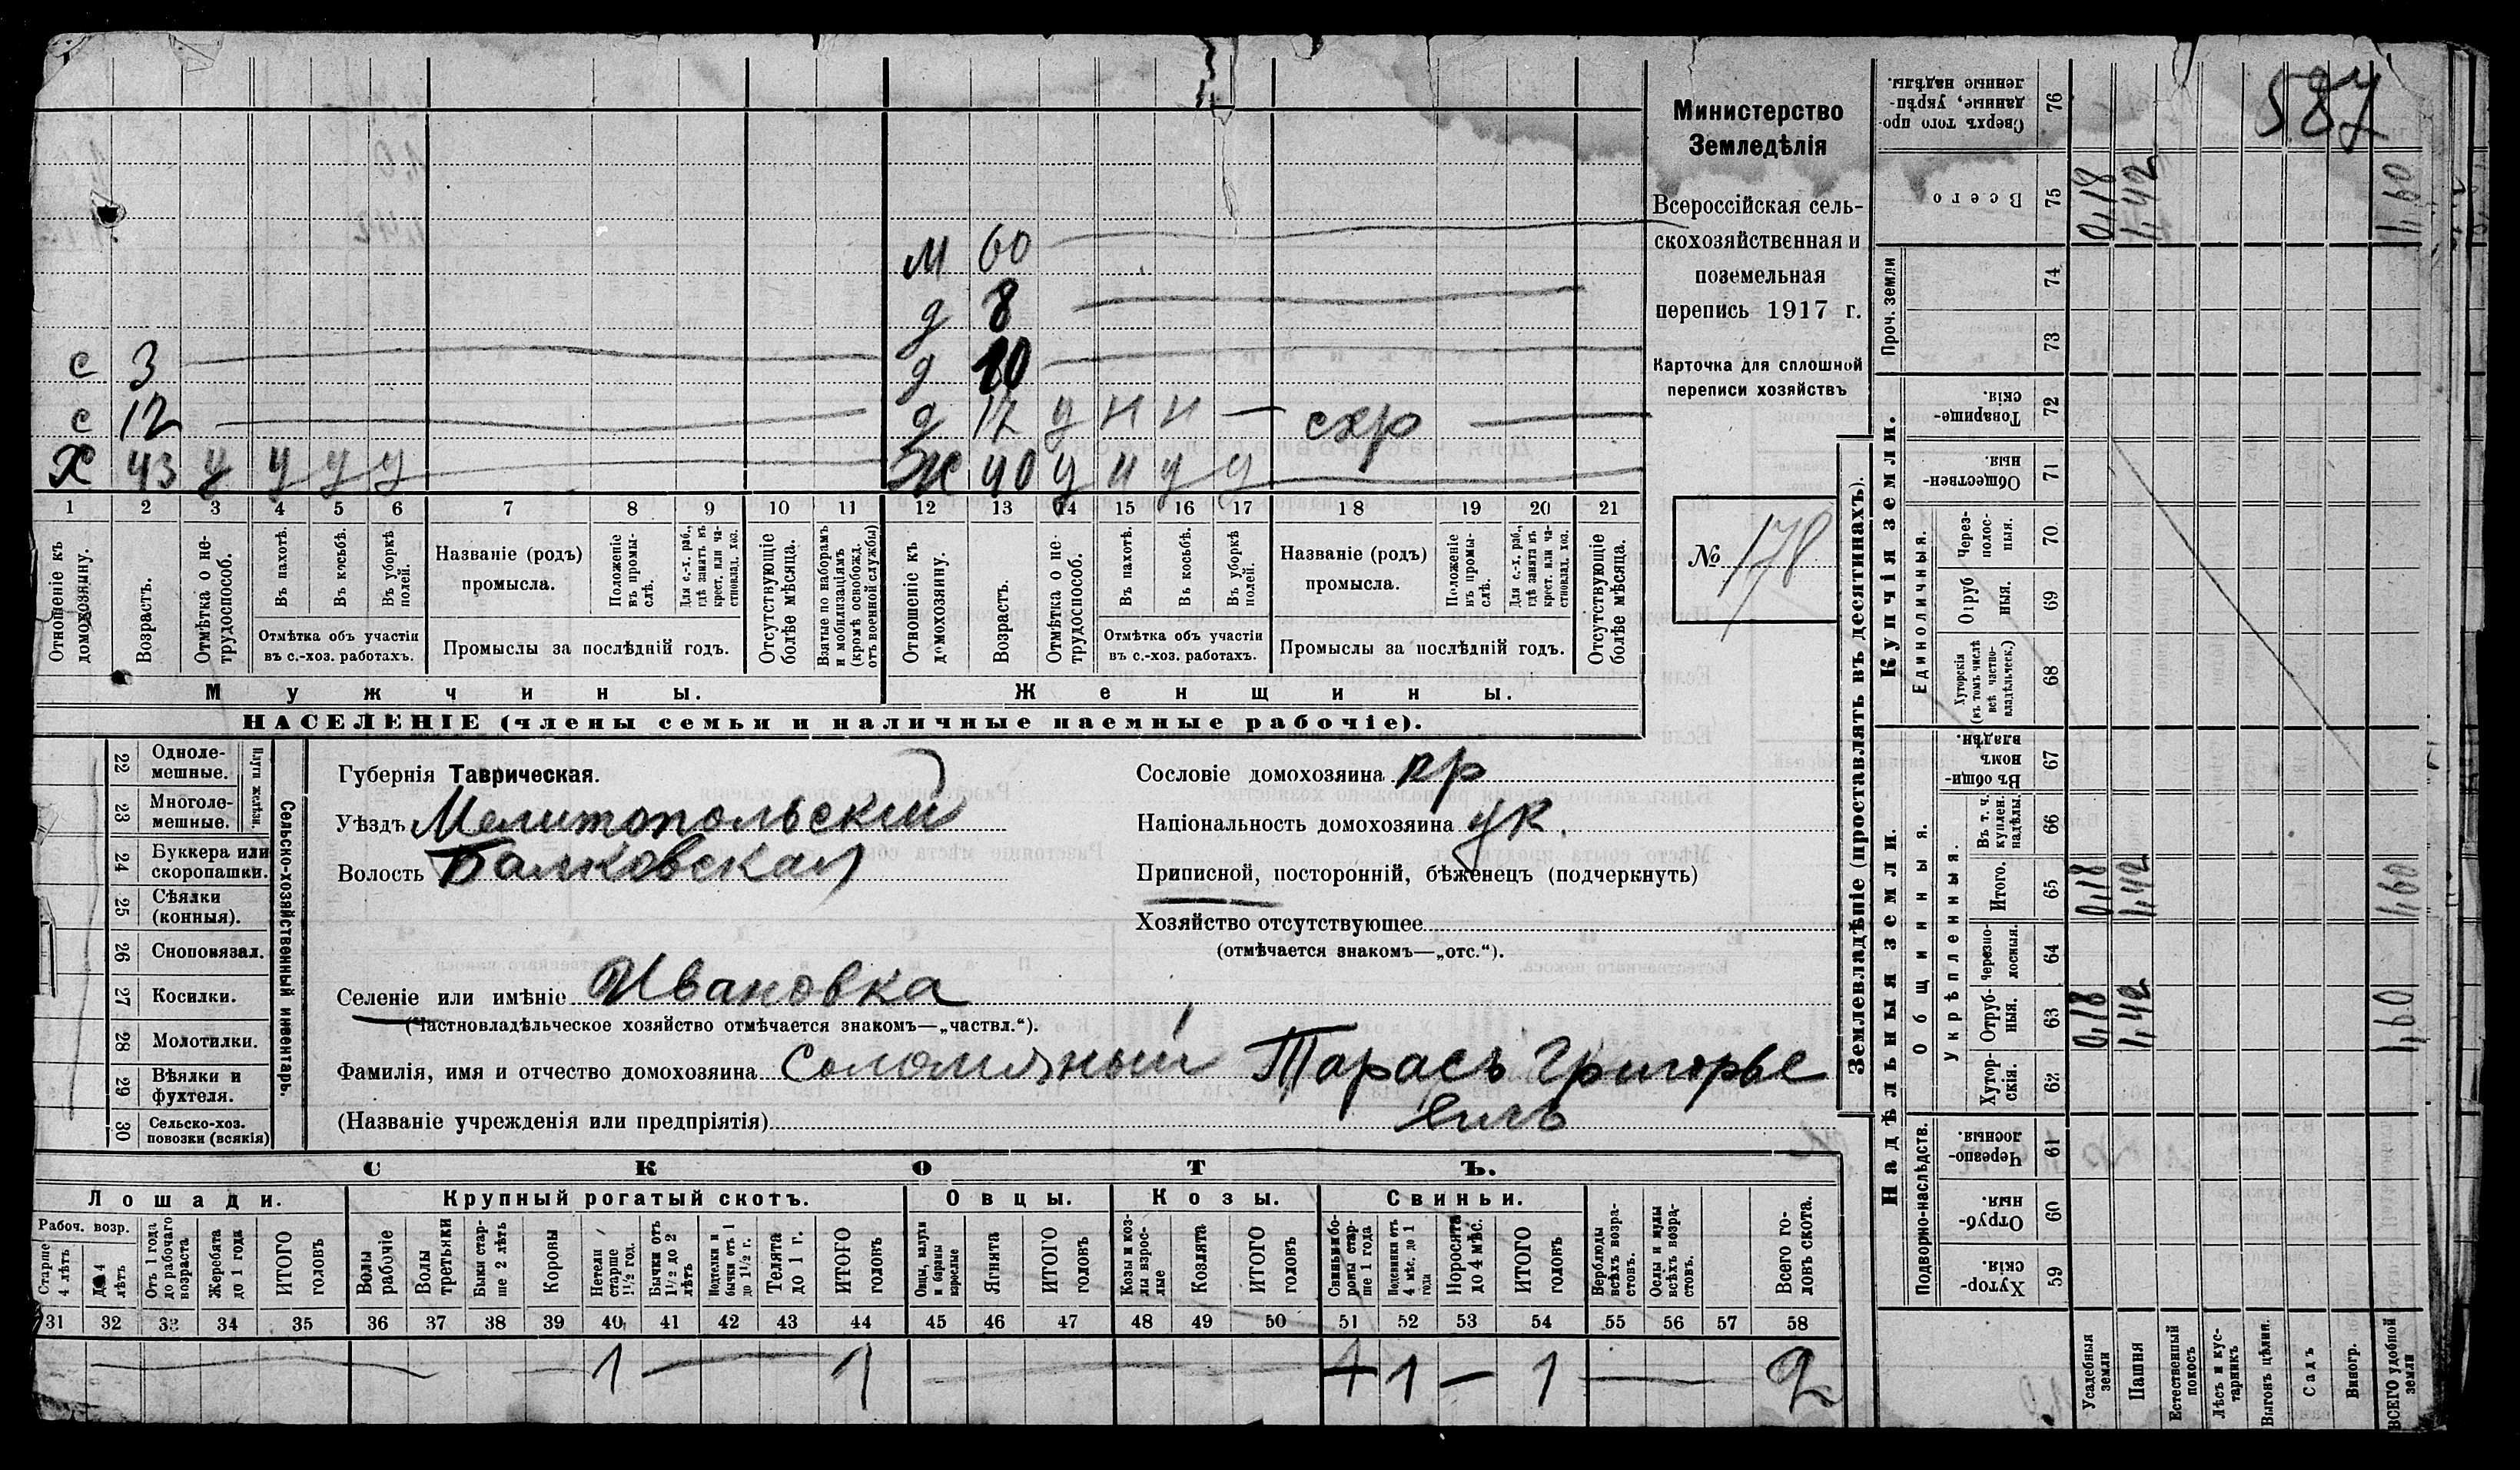 587
Министерство
Земледѣлія
Всероссійская сель-
скохозяйственная и
поземельная
перепись 1917 г.
Карточка для сплошной
переписи хозяйствъ
№ 178
М 60
д 8
с 3 д 10
с 12 д 12 у н н — схр —
Х 43 у у у у Ж 40 у н у у
1 2 3 4 5 6 7 8 9 10 11 12 13 14 15 16 17 18 19 20 21
Отношеніе къ домохозяину.
Возрастъ.
Отмѣтка о не-трудоспособ.
Въ пахотѣ.
Въ косьбѣ.
Въ уборкѣ полей.
Отмѣтка объ участіи
въ с.-хоз. работахъ.
Названіе (родъ)
промысла.
Положеніе въ промы-слѣ.
Для с.-х. раб., гдѣ занятъ въ крест. или ча-стновлад. хоз.
Промыслы за послѣдній годъ.
Отсутствующіе болѣе мѣсяца.
Взятые по наборамъ и мобилизаціямъ (кромѣ освобожд. отъ военной службы)
Отношеніе къ домохозяину.
Возрастъ.
Отмѣтка о не-трудоспособ.
Въ пахотѣ.
Въ косьбѣ.
Въ уборкѣ полей.
Отмѣтка объ участіи
въ с.-хоз. работахъ.
Названіе (родъ)
промысла.
Положеніе въ промы-слѣ.
Для с.-х. раб., гдѣ занята въ крест. или ча-стновлад. хоз.
Промыслы за послѣдній годъ.
Отсутствующіе болѣе мѣсяца.
Мужчины. Женщины.
НАСЕЛЕНІЕ (члены семьи и наличные наемные рабочіе).
22 Одноле-мешные.
23 Многоле-мешные.
Плуги желѣзн.
24 Буккера или скоропашки.
25 Сѣялки (конныя).
26 Сноповязал.
27 Косилки.
28 Молотилки.
29 Вѣялки и фухтеля.
30 Сельско-хоз. повозки (всякія)
Сельско-хозяйственный инвентарь.
Губернія Таврическая.
Уѣздъ Мелитопольскій
Волость Балковская
Селеніе или имѣніе Ивановка
(Частновладѣльческое хозяйство отмѣчается знакомъ—„частвл.“).
Фамилія, имя и отчество домохозяина Соломяный Тарасъ Григорье
вичъ
(Названіе учрежденія или предпріятія)
Сословіе домохозяина кр
Національность домохозяина ук.
Приписной, посторонній, бѣженецъ (подчеркнуть)
Хозяйство отсутствующее
(отмѣчается знакомъ—„отс.“).
СКОТЪ.
Лошади. Крупный рогатый скотъ. Овцы. Козы. Свиньи.
Рабоч. возр.
Старше 4 лѣтъ
До 4 лѣтъ
Отъ 1 года до рабочаго возраста
Жеребята до 1 года
ИТОГО головъ
Волы рабочіе
Волы третьяки
Быки стар-ше 2 лѣтъ
Коровы
Нетели старше 1½ год.
Бычки отъ 1½ до 2 лѣтъ
Подтелки и бычки отъ 1 до 1½ г.
Телята до 1 г.
ИТОГО головъ
Овцы, валухи и бараны взрослые
Ягнята
ИТОГО головъ
Козы и коз-лы взрос-лые
Козлята
ИТОГО головъ
Свиньи и бо-ровы стар-ше 1 года
Подсвинки отъ 4 мѣс. до 1 года
Поросята до 4 мѣс.
ИТОГО головъ
Верблюды всѣхъ возра-стовъ.
Ослы и мулы всѣхъ возра-стовъ.
Всего го-ловъ скота.
31 32 33 34 35 36 37 38 39 40 41 42 43 44 45 46 47 48 49 50 51 52 53 54 55 56 57 58
1 1 1 — 1 2
Землевладѣніе (проставлять въ десятинахъ).
Надѣльныя земли. Купчія земли.
Проч. земли
Подворно-наслѣдств.
Общинныя.
Укрѣпленныя.
Единоличныя.
Сверхъ того про-данные, укрѣп-ленные надѣлы. 76
Всего 75 0,18 1,42 1,60
74
73
Товарище-скія. 72
Обществен-ныя. 71
Через-полос-ныя. 70
Отруб-ныя. 69
Хуторскія (въ томъ числѣ всѣ частно-владѣльческ.) 68
Въ общин-номъ владѣн. 67
Въ т. ч. куплен. надѣлы. 66
Итого. 65 0,18 1,42 1,60
Черезпо-лосныя. 64
Отруб-ныя. 63 0,18 1,42 1,60
Хутор-скія. 62
Черезпо-лосныя. 61
Отруб-ныя. 60
Хутор-скія. 59
Усадебныя земли
Пашня
Естественный покосъ
Лѣсъ и кус-тарникъ
Выгонъ цѣлин.
Садъ
Виногр.
ВСЕГО удобной земли